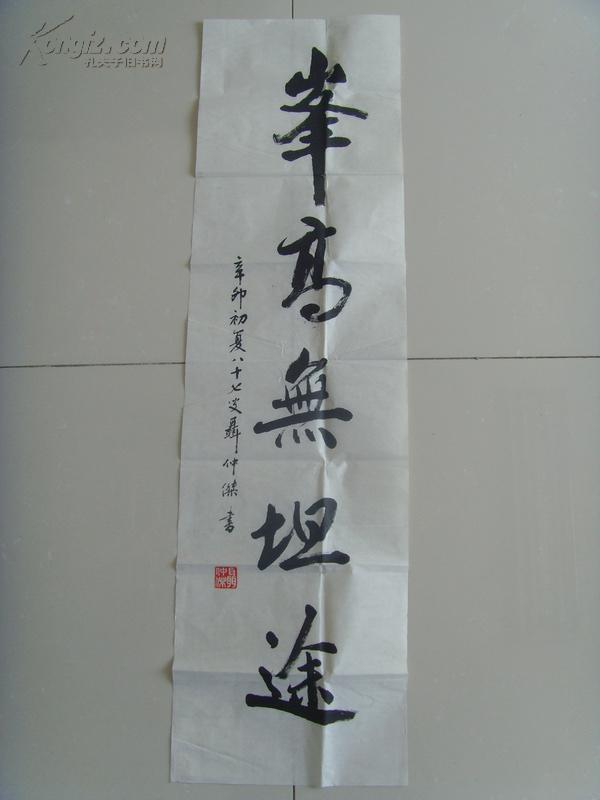 Kongfz.com
孔夫子旧书网
峯高無坦途
辛卯初夏八十七叟聶仲傑書